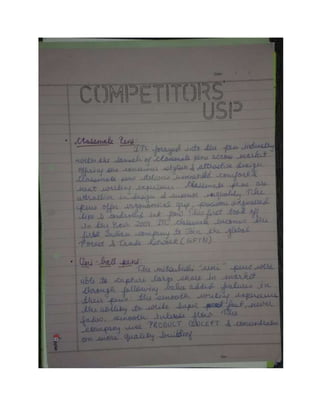 COMPETITORS'
USP
Classmate Pens:
ITC forayed into the pen industry
with the launch of Classmate pens across market
offering the consumers stylish & attractive design
Classmate pens delivers unmatched comfort &
writing experience. Classmate pens are
attractive in design & superior originality. The
pens offer ergonomic grip, precision engineered
tips & enduring ink flow. This first took off
in the year 2007. ITC
first Indian company to join the global
Forest & Trade Network (GFTN)
Uni-ball pens:
The mitsubishi "uni" pens were
able to capture large share in market
through following value added features in
their pens: the smooth writing experience
the ability to write super but never
fades, smooth release flow. The
company uses PRODUCT CONCEPT & concentrates
on more quality building